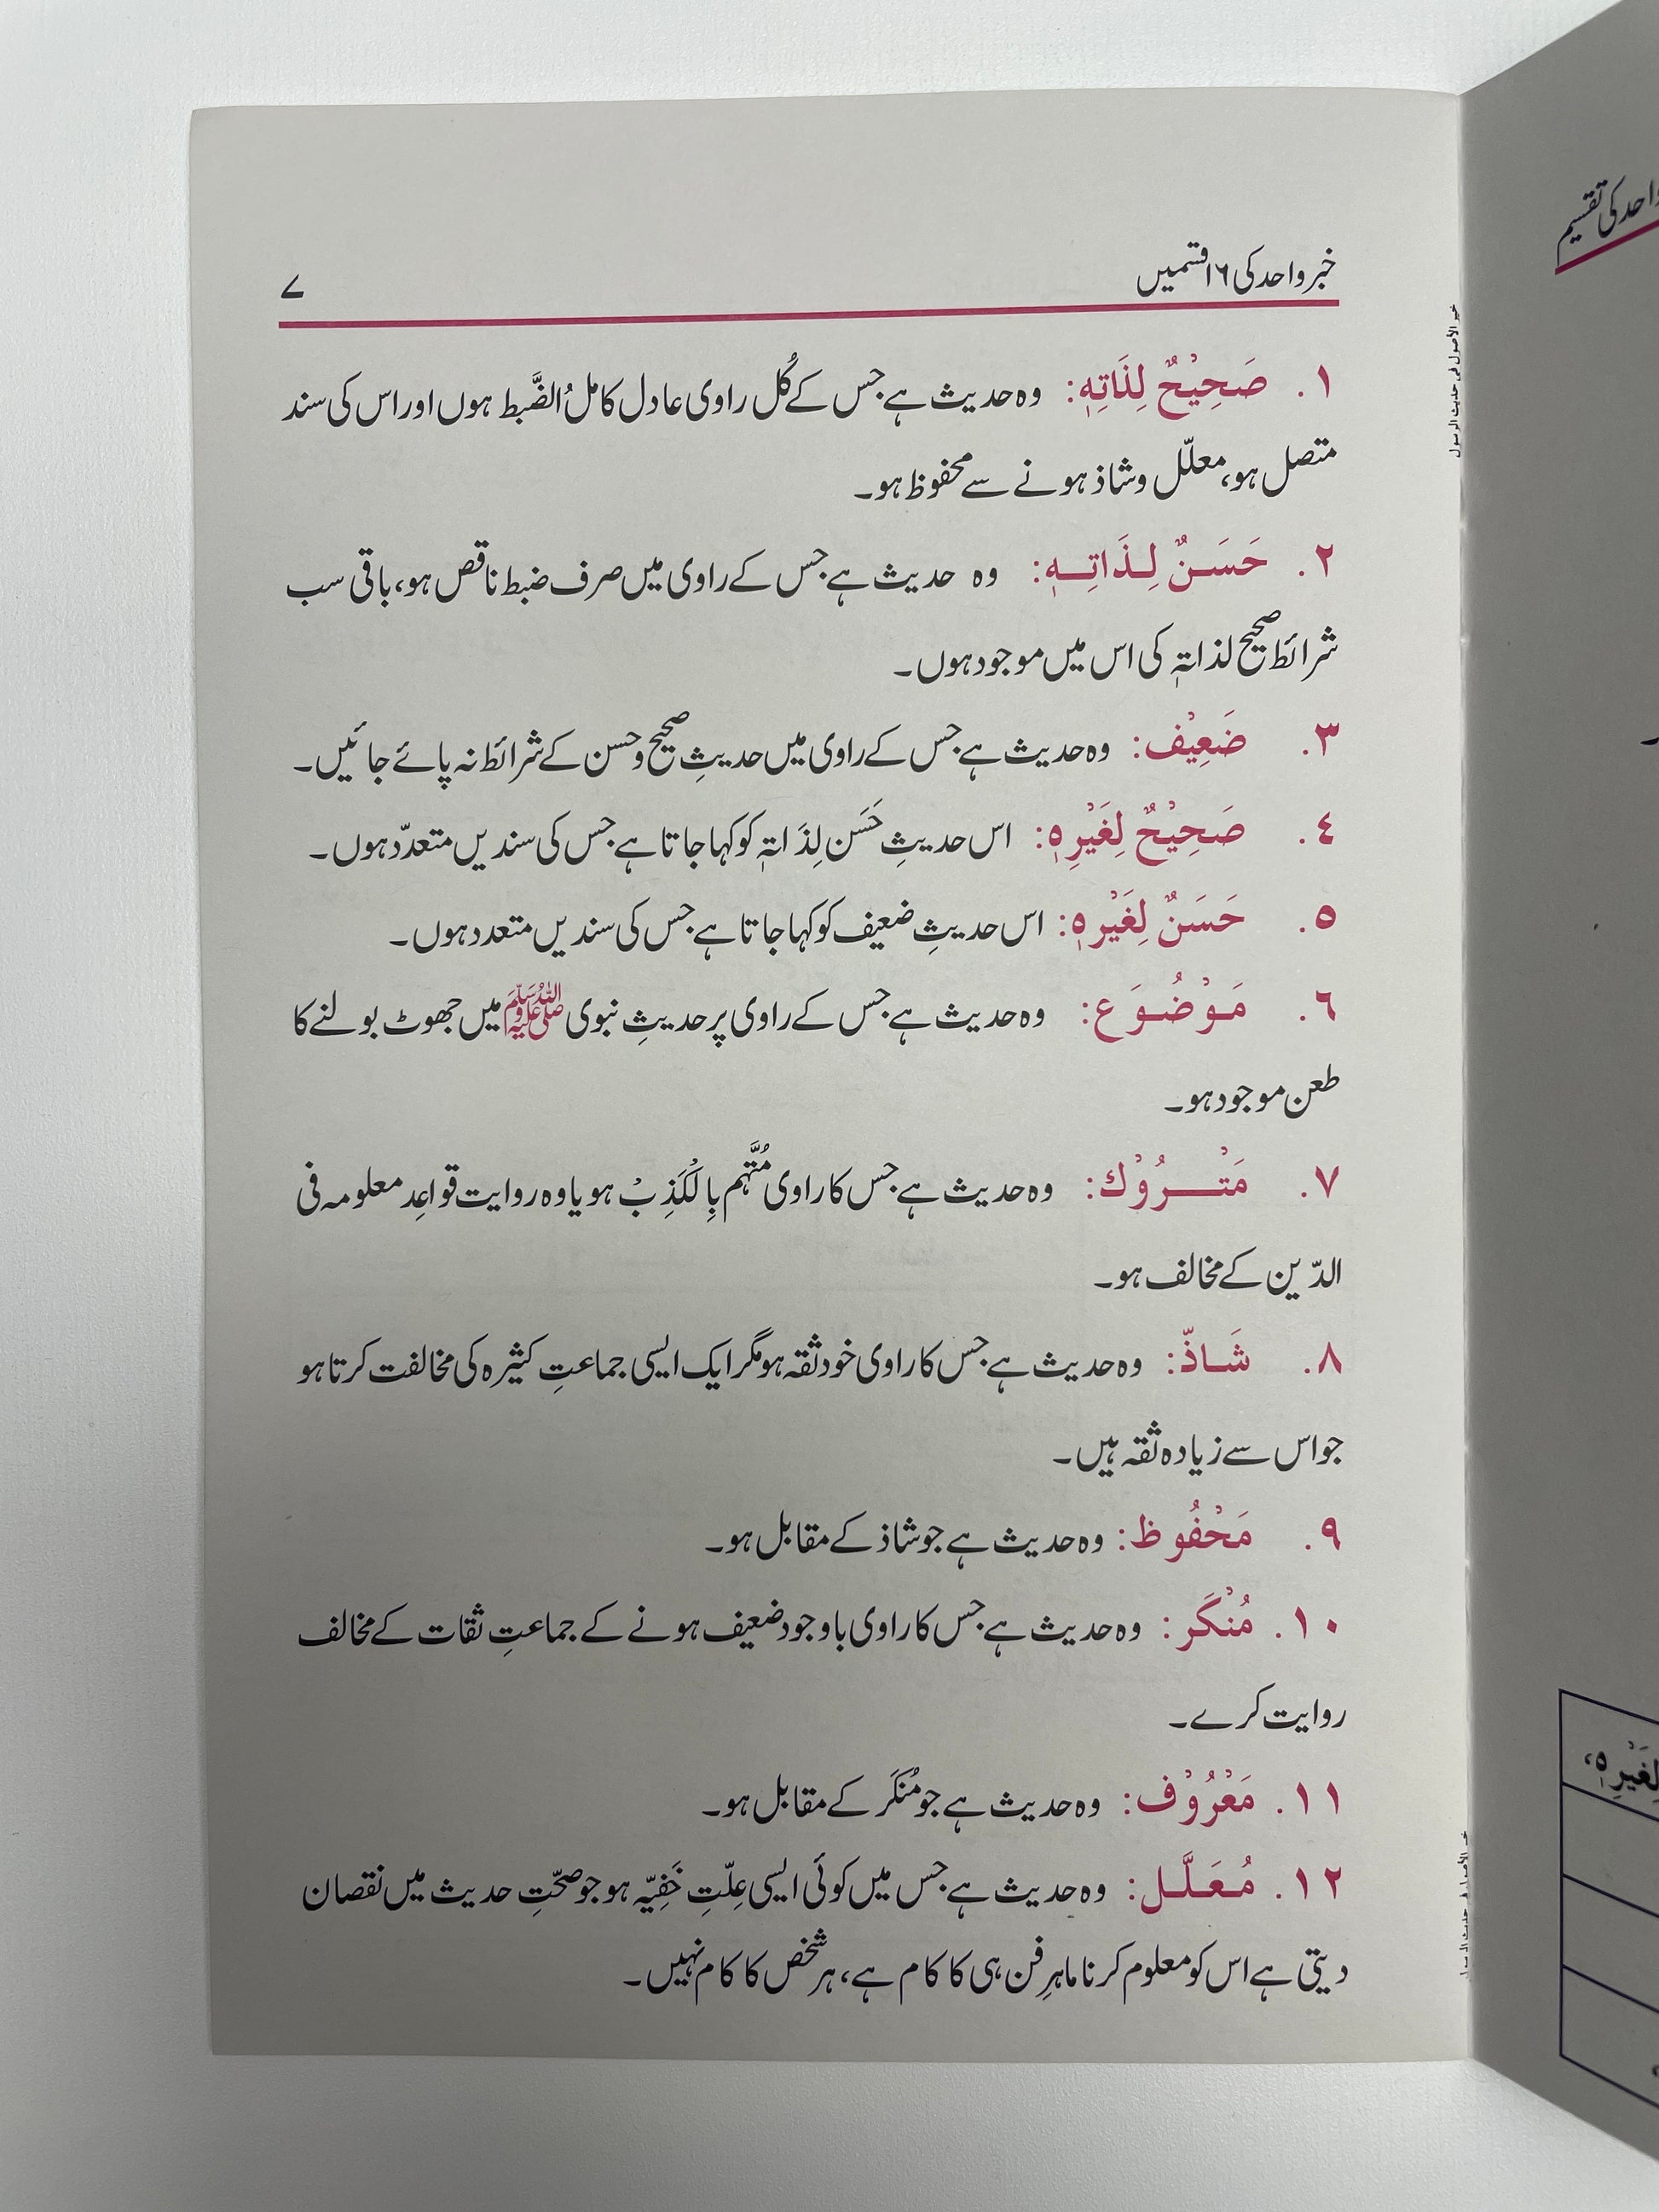 خبر واحد کی ۱۶ قسمیں
۷
۱. صَحِيْحٌ لِذَاتِهٖ: وہ حدیث ہے جس کے کُل راوی عادل کاملُ الضَّبط ہوں اور اس کی سند
متصل ہو، معلّل وشاذ ہونے سے محفوظ ہو۔
۲. حَسَـنٌ لِـذَاتِـهٖ: وہ حدیث ہے جس کے راوی میں صرف ضبط ناقص ہو، باقی سب
شرائط صحیح لذاتہٖ کی اس میں موجود ہوں۔
۳. ضَعِيْف: وہ حدیث ہے جس کے راوی میں حدیثِ صحیح وحسن کے شرائط نہ پائے جائیں۔
٤. صَحِيْحٌ لِغَيْرِهٖ: اس حدیثِ حَسَن لِذَاتہٖ کو کہا جاتا ہے جس کی سندیں متعدّد ہوں۔
٥. حَسَنٌ لِغَيْرِهٖ: اس حدیثِ ضعیف کو کہا جاتا ہے جس کی سندیں متعدد ہوں۔
٦. مَـوْضُـوَع: وہ حدیث ہے جس کے راوی پر حدیثِ نبوی ﷺ میں جھوٹ بولنے کا
طعن موجود ہو۔
۷. مَتْـــرُوْك: وہ حدیث ہے جس کا راوی مُتَّہم بِالْکَذِبْ ہو یا وہ روایت قواعِد معلومہ فی
الدّین کے مخالف ہو۔
۸. شَـاذّ: وہ حدیث ہے جس کا راوی خود ثقہ ہو مگر ایک ایسی جماعتِ کثیرہ کی مخالفت کرتا ہو
جو اس سے زیادہ ثقہ ہیں۔
۹. مَحْفُوظ: وہ حدیث ہے جو شاذ کے مقابل ہو۔
۱۰. مُنْكَر: وہ حدیث ہے جس کا راوی باوجود ضعیف ہونے کے جماعتِ ثقات کے مخالف
روایت کرے۔
۱۱. مَعْرُوْف: وہ حدیث ہے جو مُنکَر کے مقابل ہو۔
۱۲. مُـعَـلَّـل: وہ حدیث ہے جس میں کوئی ایسی عِلّتِ خَفِیّہ ہو جو صحّتِ حدیث میں نقصان
دیتی ہے اس کو معلوم کرنا ماہرِ فن ہی کا کام ہے، ہر شخص کا کام نہیں۔
خير الأصول في حديث الرسول
واحد کی تقسیم
لِغَيْرِهٖ،